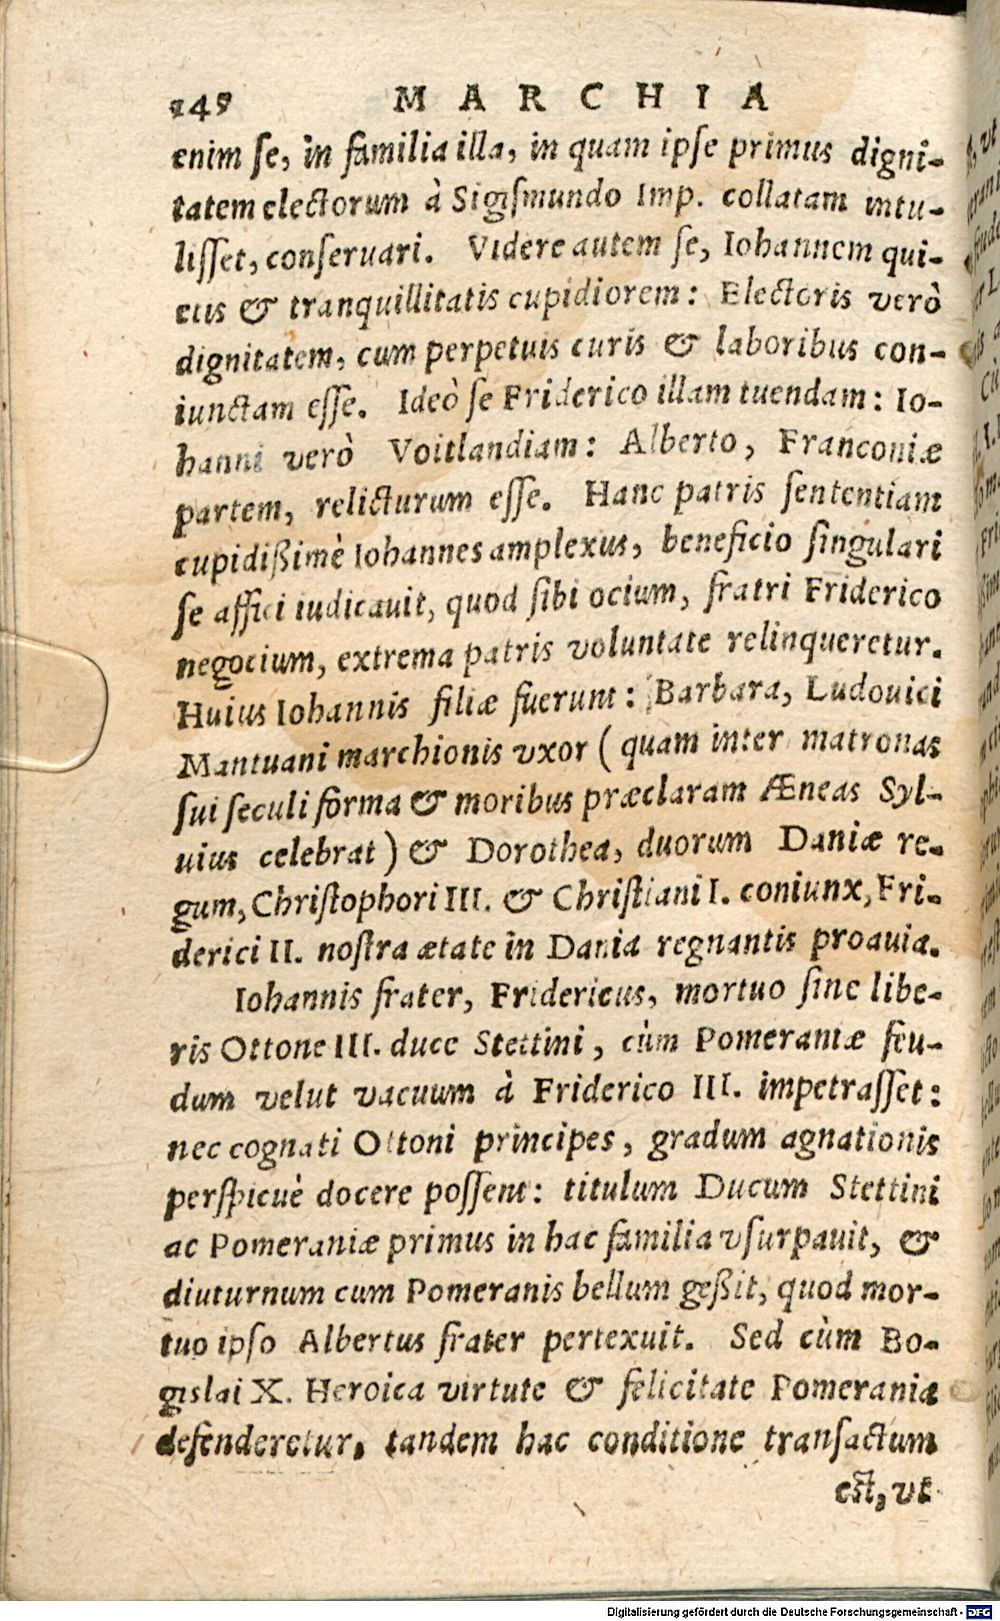 249 MARCHIA
enim se, in familia illa, in quam ipse primus digni-
tatem electorum à Sigismundo Imp. collatam intu-
lisset, conseruari. Videre autem se, Iohannem qui-
etis & tranquillitatis cupidiorem: Electoris verò
dignitatem, cum perpetuis curis & laboribus con-
iunctam esse. Ideò se Friderico illam tuendam: Io-
hanni verò Voitlandiam: Alberto, Franconiæ
partem, relicturum esse. Hanc patris sententiam
cupidißimè Iohannes amplexus, beneficio singulari
se affici iudicauit, quod sibi ocium, fratri Friderico
negocium, extrema patris voluntate relinqueretur.
Huius Iohannis filiæ fuerunt: Barbara, Ludouici
Mantuani marchionis vxor (quam inter matronas
sui seculi forma & moribus præclaram Æneas Syl-
uius celebrat) & Dorothea, duorum Daniæ re-
gum, Christophori III. & Christiani I. coniunx, Fri-
derici II. nostra ætate in Dania regnantis proauia.
Iohannis frater, Fridericus, mortuo sine libe-
ris Ottone III. duce Stettini, cùm Pomeraniæ feu-
dum velut vacuum à Friderico III. impetrasset:
nec cognati Ottoni principes, gradum agnationis
perspicuè docere possent: titulum Ducum Stettini
ac Pomeraniæ primus in hac familia vsurpauit, &
diuturnum cum Pomeranis bellum geßit, quod mor-
tuo ipso Albertus frater pertexuit. Sed cùm Bo-
gislai X. Heroica virtute & felicitate Pomerania
defenderetur, tandem hac conditione transactum
est, vt
Digitalisierung gefördert durch die Deutsche Forschungsgemeinschaft - DFG